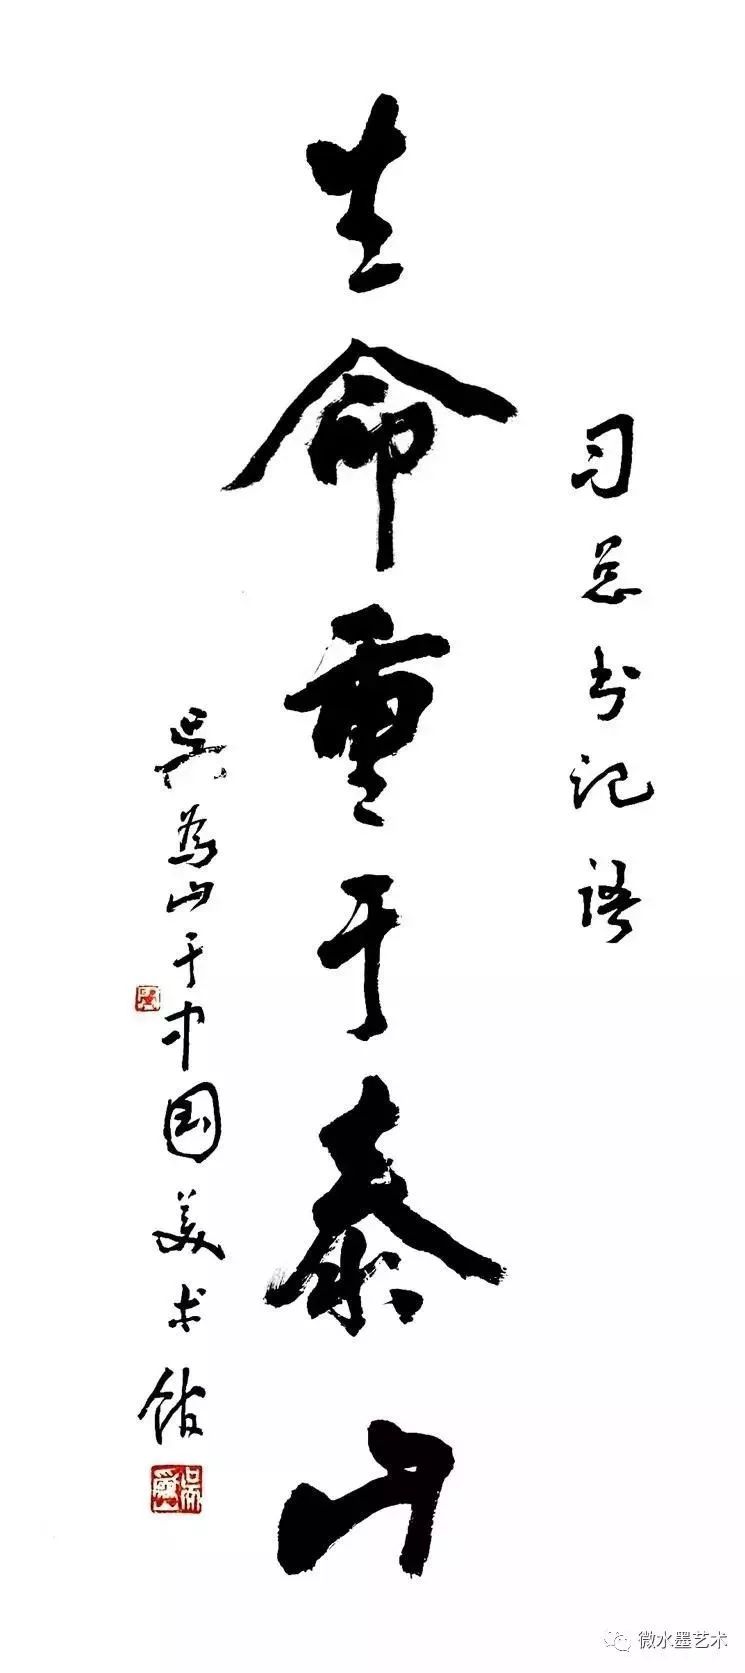 习总书记语
生命重于泰山
吴为山于中国美术馆
吴为山
微水墨艺术